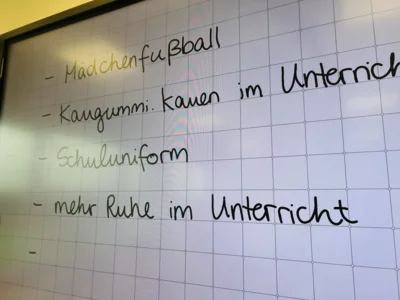 - Mädchenfußball
- Kaugummi kauen im Unterrich
- Schuluniform
- mehr Ruhe im Unterricht
-